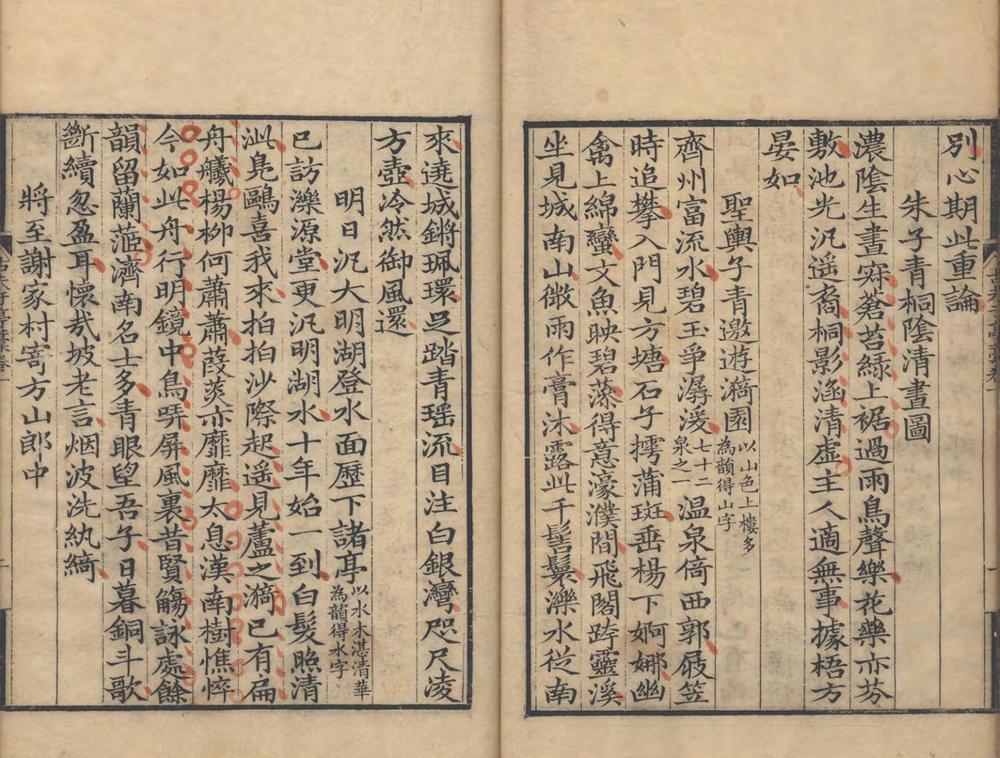 別心期此重論
朱子青桐陰清晝圖
濃陰生晝寂蒼苔綠上裾過雨鳥聲樂花藥亦芬
敷池光汎遥裔桐影涵清虛主人適無事據梧方
晏如
聖輿子青邀遊漪園以山色上樓多
為韻得山字
齊州富流水碧玉爭潺湲七十二
泉之一溫泉倚西郭屐笠
時追攀入門見方塘石子摴蒲斑垂楊下婀娜幽
禽上綿蠻文魚映碧藻得意濠濮間飛閣跨靈溪
坐見城南山微雨作膏沐露此千髻鬟濼水從南
來遶城鏘珮環足踏青瑶流目注白銀灣咫尺凌
方壺冷然御風還
明日汎大明湖登水面歷下諸亭以水木湛清華
為韻得水字
已訪濼源堂更汎明湖水十年始一到白髮照清
泚鳧鷗喜我來拍拍沙際起遥見蘆之漪已有扁
舟艤楊柳何蕭蕭葭菼亦靡靡太息漢南樹憔悴
今如此舟行明鏡中鳥哢屏風裏昔賢觴詠處餘
韻留蘭茝濟南名士多青眼望吾子日暮銅斗歌
斷續忽盈耳懷哉坡老言烟波洗紈綺
將至謝家村寄方山郎中